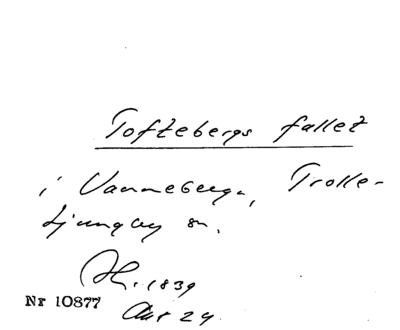 Toftebergs fallet
i Vanneberga, Trolle-
Ljungby sn.
1839
Nr 10877
24